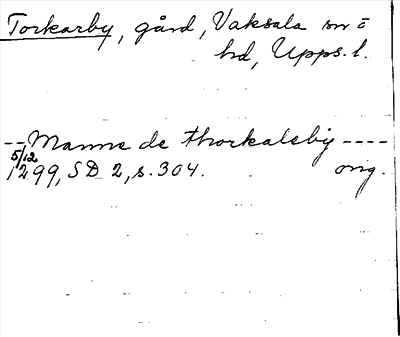 Torkarby, gård, Vaksala sn o
hd, Upps. l.
-- Manne de Thorkalsby ----
5/12
1299, SD 2, s. 304. orig.